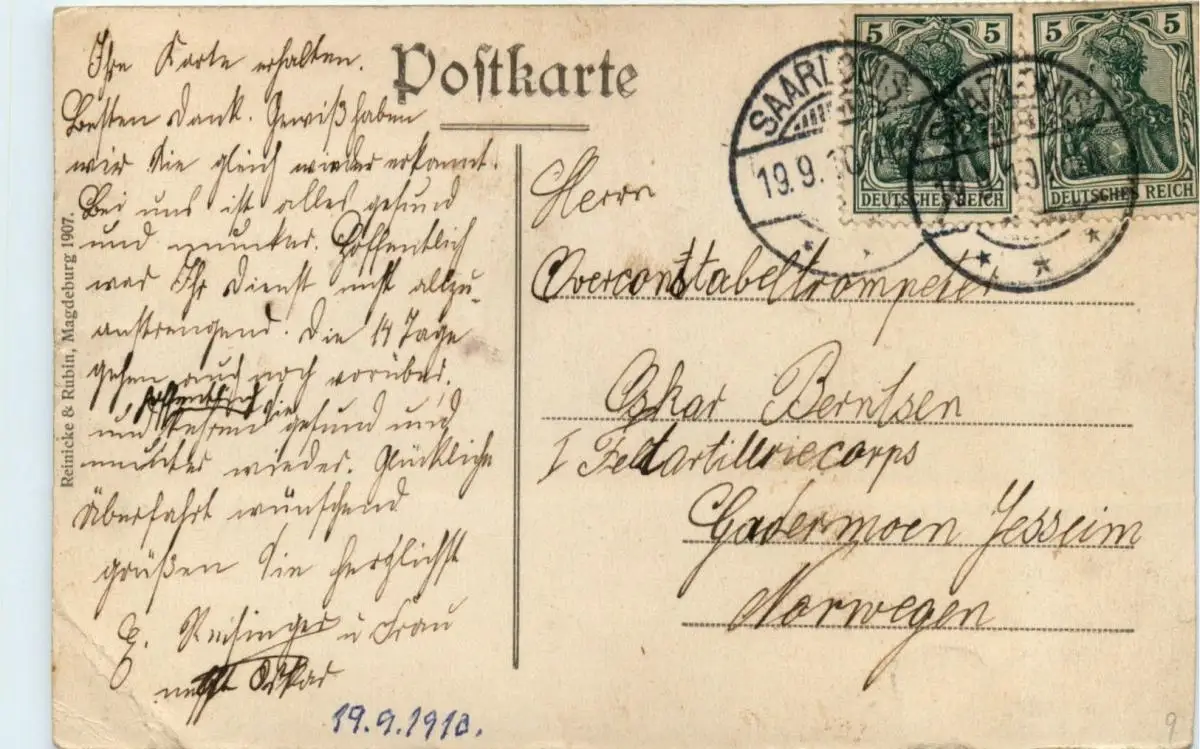 Postkarte
Ihre Karte erhalten.
Besten Dank. Gewiß haben
wir Sie gleich wieder erkannt.
Bei uns ist alles gesund
und munter. Hoffentlich
war Ihr Dienst nicht allzu-
anstrengend. Die 14 Tage
gehen auch noch vorüber.
hoffentlich
und kehren Sie gesund und
munter wieder. Glückliche
Überfahrt wünschend
grüßen Sie herzlichst
E. Reisinger u Frau
nebst Oskar
19.9.1910.
Reinicke & Rubin, Magdeburg 1907.
5 5
DEUTSCHES REICH
5 5
DEUTSCHES REICH
SAARLOUIS
19.9.10
SAARLOUIS
19.9.10
Herrn
Overconstabeltrompeter
Oskar Berntsen
I Feltartilleriecorps
Gadermoen Jesseim
Norwegen
9